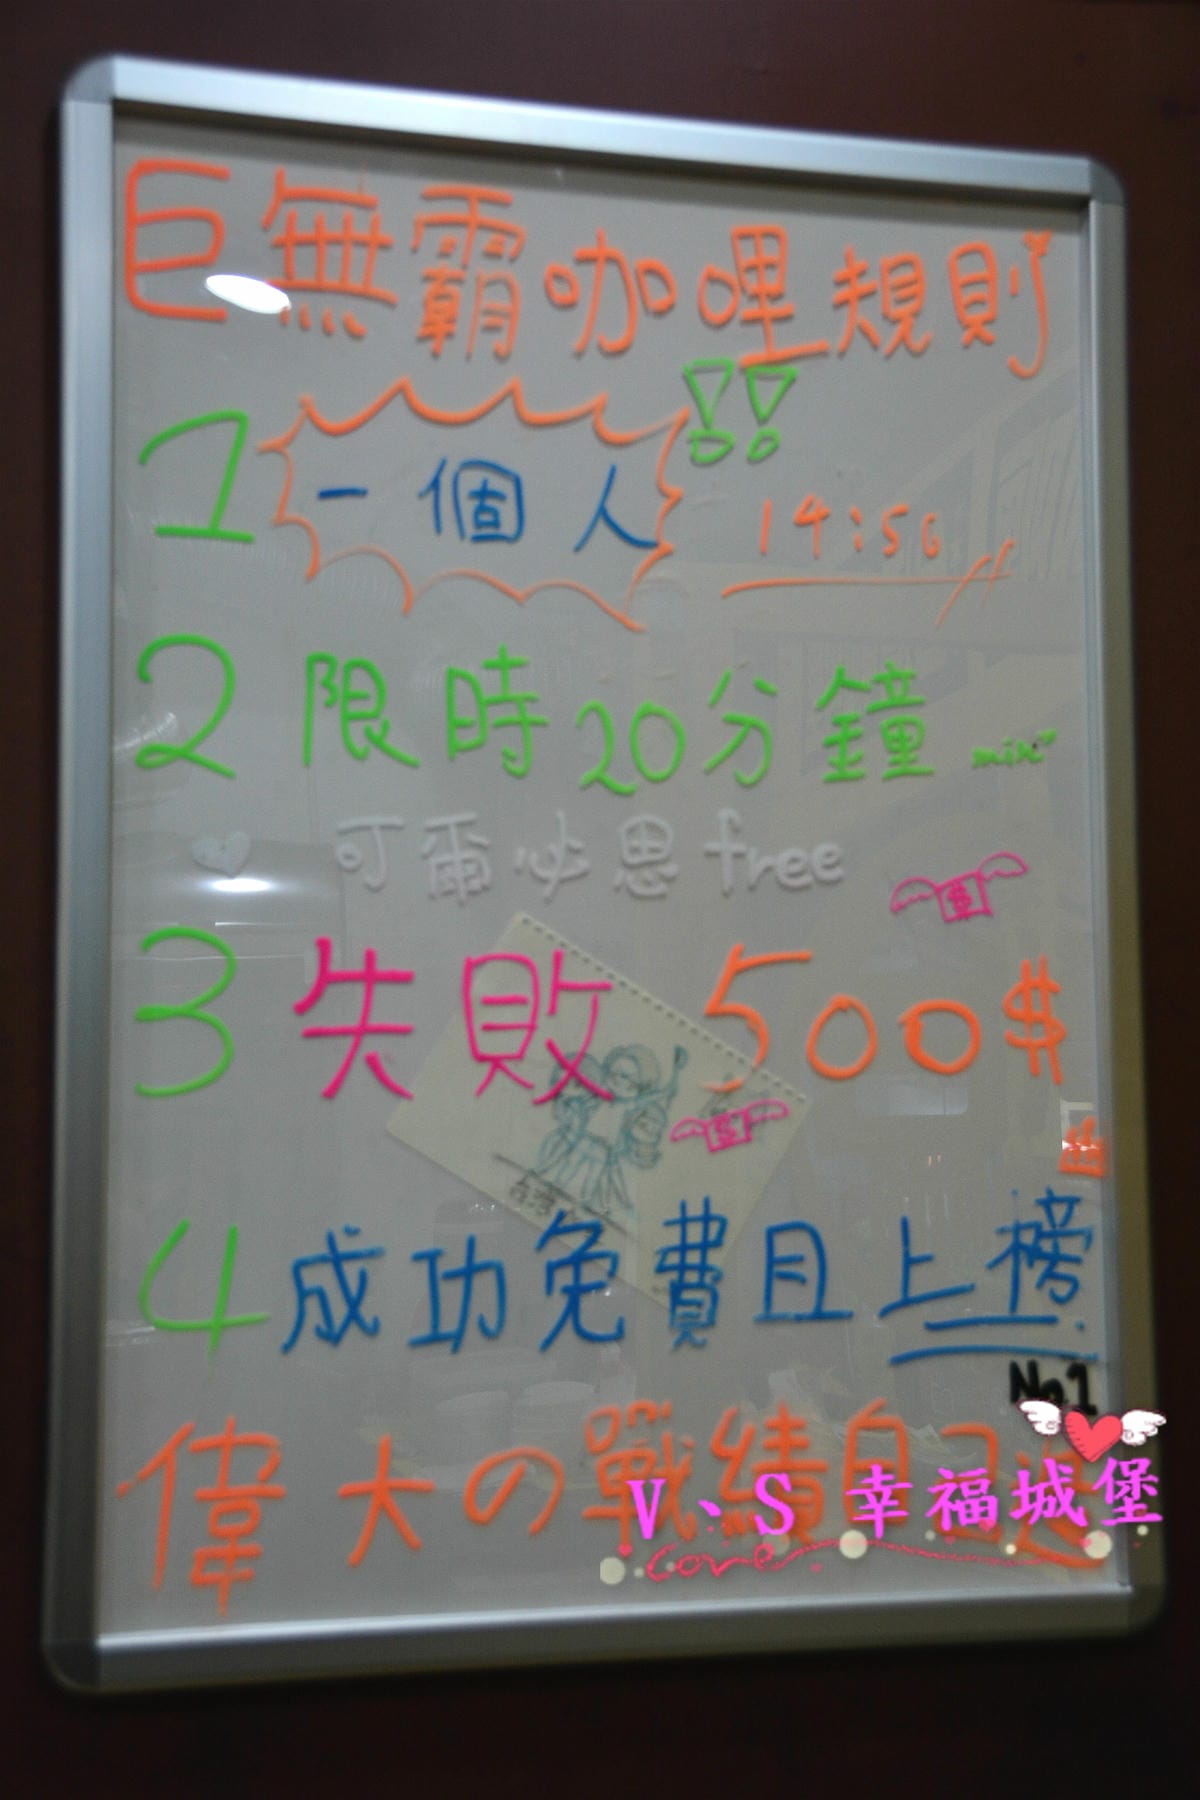 巨無霸咖哩規則
1 一個人 !! 14:56
2 限時20分鐘 min
可爾必思free
3 失敗 500$
台灣
4 成功免費且上榜
No.1
偉大の戰績自己
V、S 幸福城堡
Love